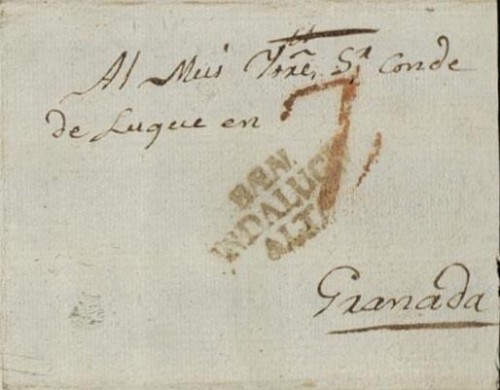 Al Mui Yrre. Sr. Conde
de Luque en
7
BAEN.
ANDALUCIA
ALTA
Granada